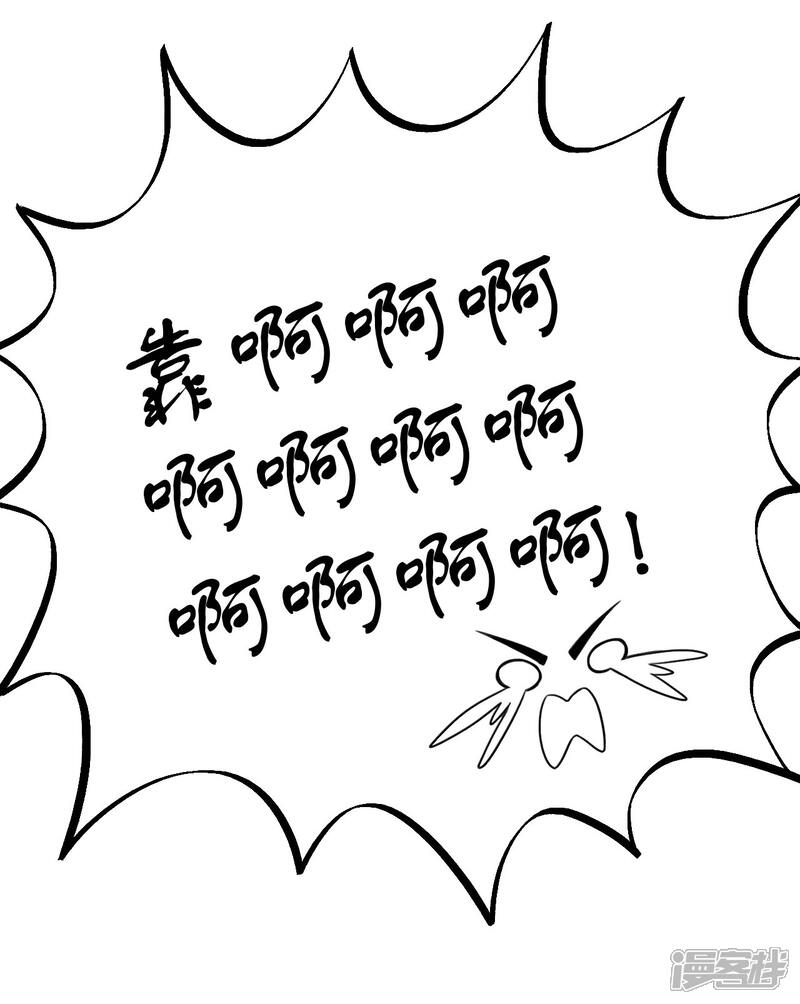 靠啊啊啊
啊啊啊啊
啊啊啊啊！
漫客栈